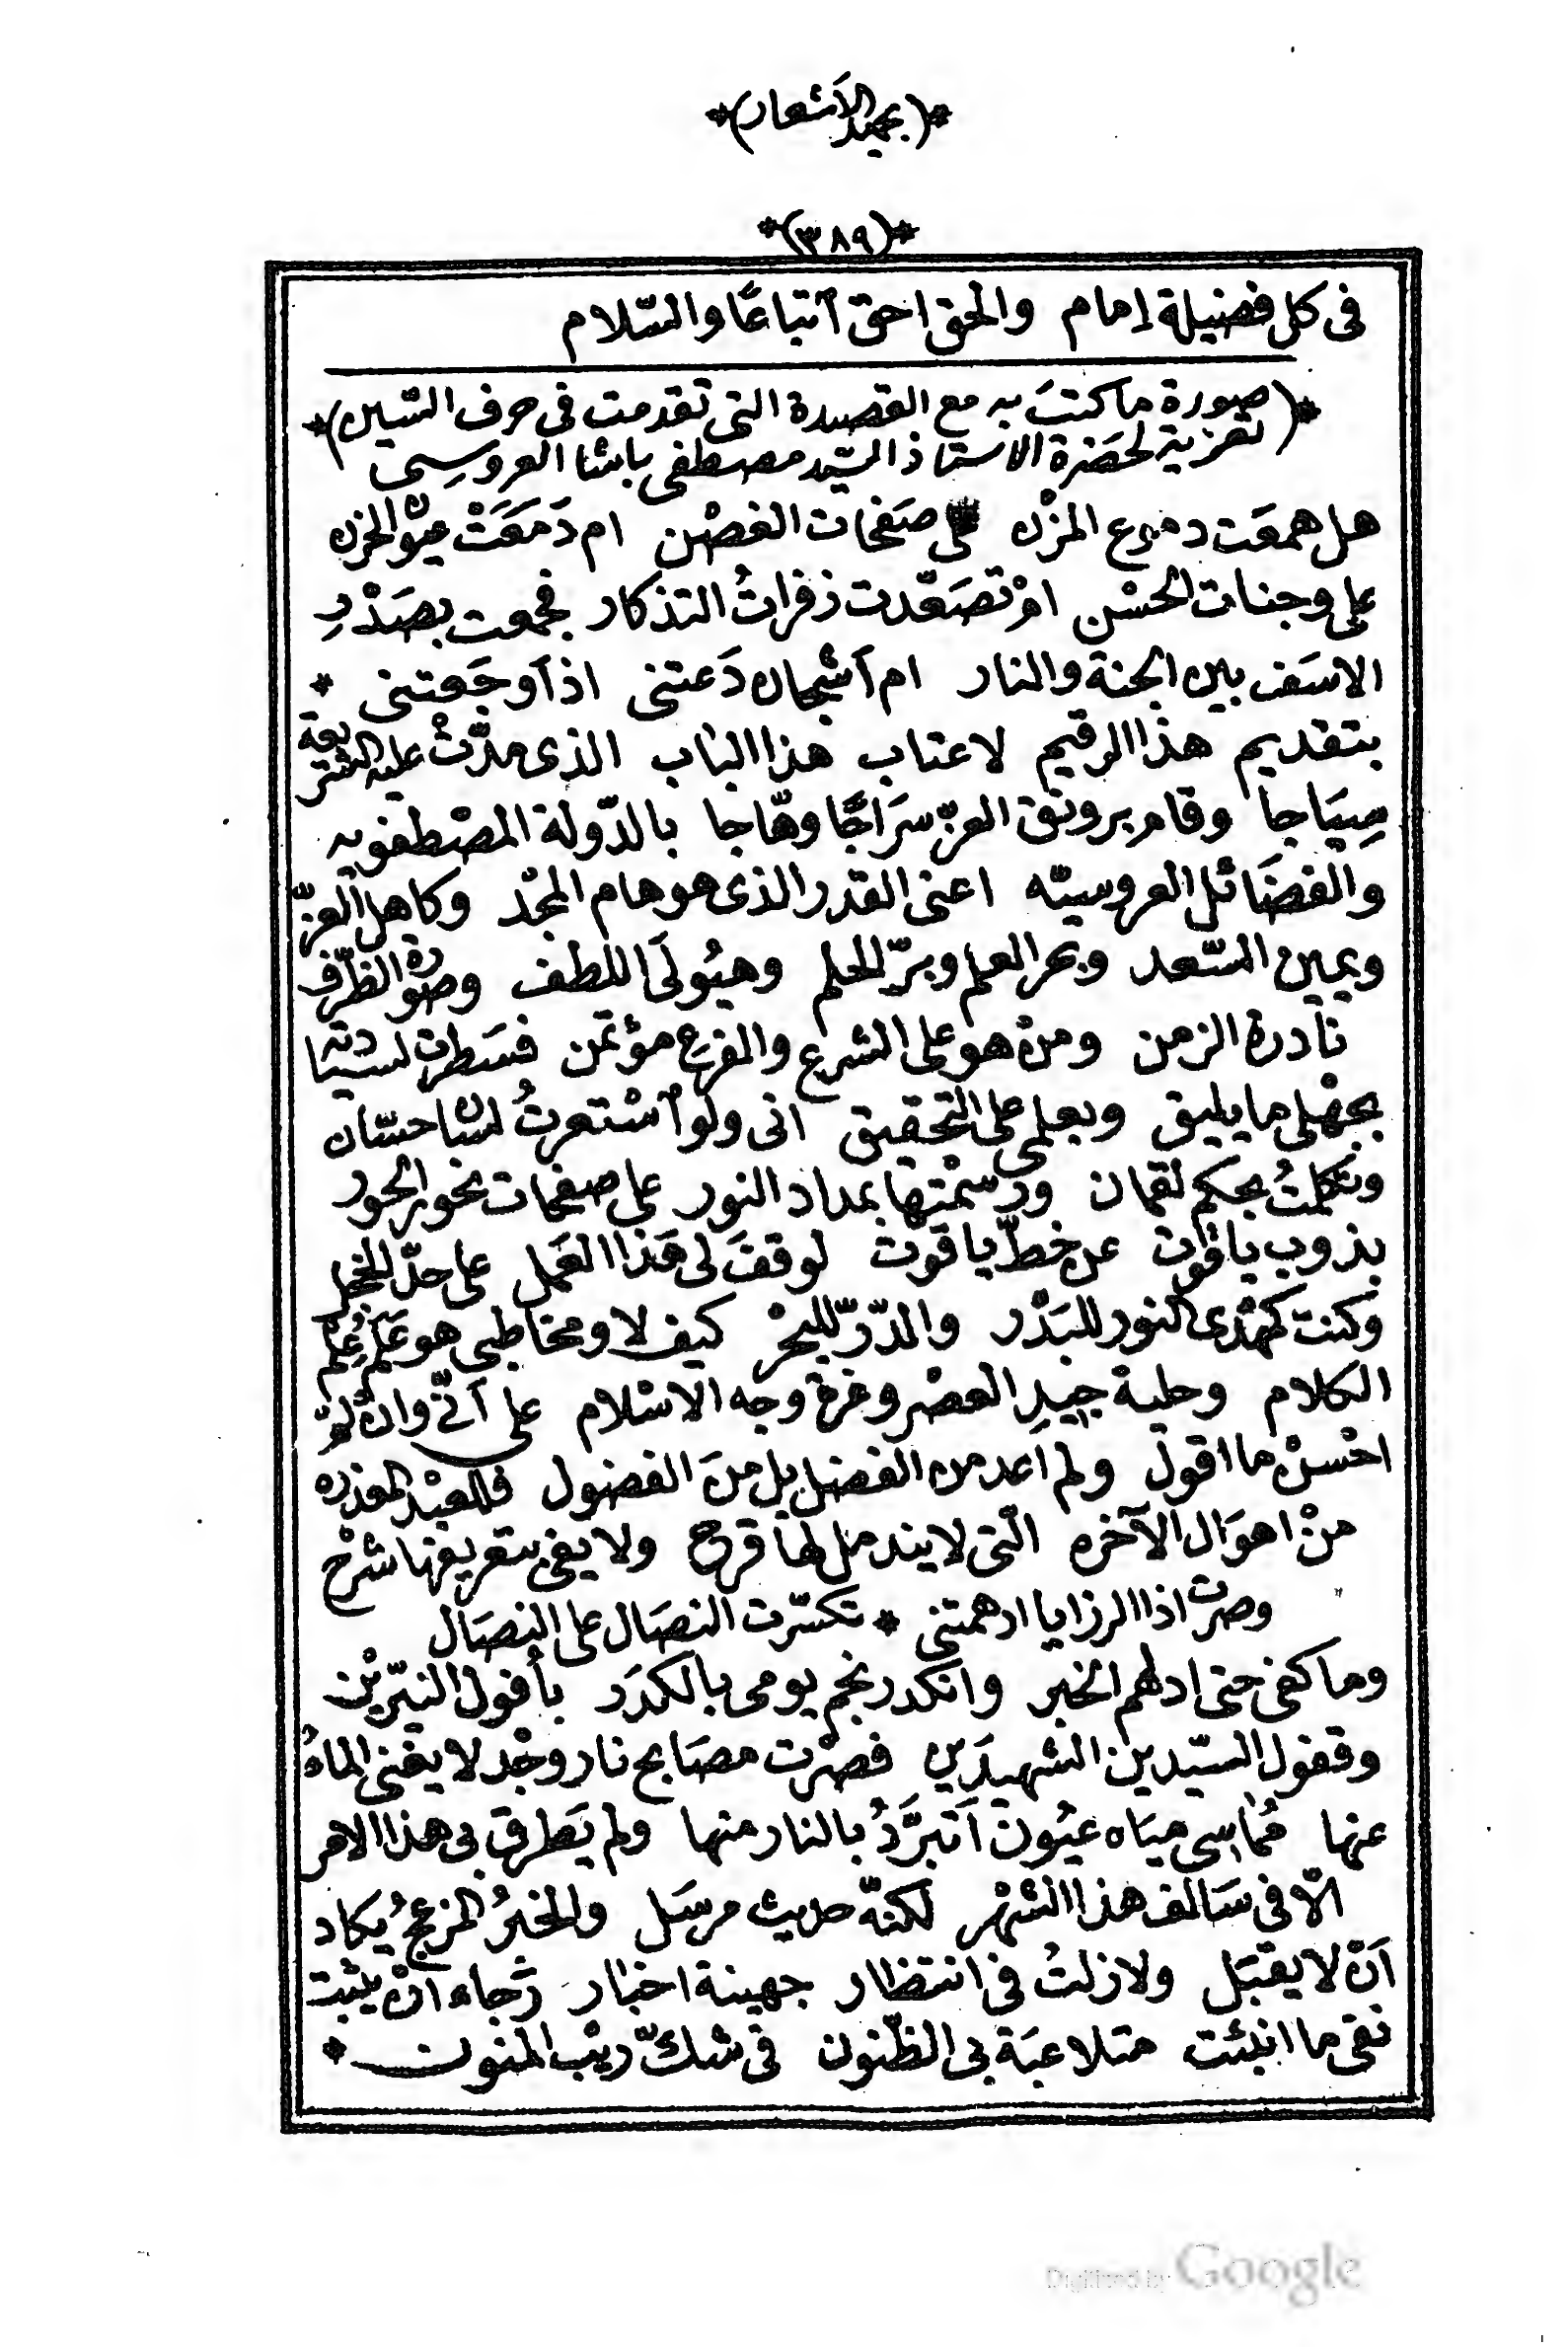 *(بحميد الأشعار)*
*(٣٨٩)*
فى كل فضيلة إمام والحق احق آتباعًا والسّلام
*(صورة ما كتبَ به مع القصيدة التى تقدمت فى حرف السّين)*
تعزية لحَضرة الاستاذ السّيد مصطفى باشا العروسِى
هل همعَت دموع المزْن على صفحات الغصْن ام دَمَعَتْ عيون الحزن
على وجنات الحسْن اوْ تصَعّدت زفراتُ التذكار فجمعت بصَدْرِ
الاسَف بين الجنة والنار ام آشجان دَعتنى اذ آوجَعتنى *
بتقديم هذا الرقيم لاعتاب هذا الباب الذى مدّتْ عليه الشريعة
سِيَاجا وقام برونق العزّ سرَاجًا وهّاجا بالدّولة المصْطفويه
والفضَائل العروسيّه اعنى القدر الذى هو هام المجْد وكاهل العزّ
ويمين السّعد وبحر العلم وبرّ الحلم وهيُولَى اللطف وصورة الظّرف
نادرة الزمن ومنْ هو على الشرع والفرَع مؤتمن فسَطرت لسيادته
بجهْلى ما يليق وبعلمى على التحقيق انى ولو آسْتعرتُ لسَان حسّان
وتكلمتُ بحكم لقمان ورسمْتها بمداد النور على صفحات نحور الحور
بذوب ياقوت عن خطّ ياقوت لوقفَ لى هَذا العَمل على حدّ الخجل
وكنت كمهْدى النور للبَدْر والدّرّ للبحْر كيف لا ومخاطبى هو عَلَم عِلْم
الكلام وحلية جيدِ العصْر وغرة وجه الاسْلام على آنّى وان لم
احْسنْ ما اقول ولم اعد من الفضل بل منَ الفضول فللعبْد المعذره
منْ اهوَال الآخره الّتى لا يندمل لها قرح ولا يفى بتعريفها شرْح
وصرت اذا الرزايا ادهمتنى * تكسّرت النصَال على النصَال
وما كفى حتى ادلهم الخبر وانكدر نجم يومى بالكدَر بأفول النيّريْن
وقفول السّيدين الشهيدَين فصرْت مصَابح نار وجْد لا يغنى الماءُ
عنها مُماسى ميَاه عيُون آتبرَّدُ بالنار منها ولم يَطرق بى هذا الامر
الّا فى سَالف هذا الشهْر لكنّه حديث مرسَل والخبرُ المزعجُ يكاد
اَنْ لا يقبَل ولا زلتُ فى انتظار جهينة اخبار رَجاء انْ يثبت
نفى ما انبئت متلاعبَة بى الظّنون فى شكّ ريْب المنون *
Digitized by Google